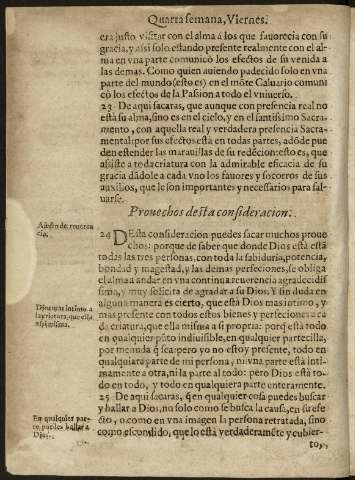 Quarta semana, Viernes.
era justo visitar con el alma à los que fauorecia con su
gracia, y assi solo estando presente realmente con el al-
ma en vna parte comunicò los efectos de su venida a
las demas. Como quien auiendo padecido solo en vna
parte del mundo (esto es) en el mõte Caluario comuni
cò los efectos de la Passion a todo el vniuerso.
23 De aqui sacaras, que aunque con presencia real no
està su alma, sino es en el cielo, y en el santissimo Sacra-
mento, con aquella real y verdadera presencia Sacra-
mental: por sus efectos està en todas partes, adõde pue
den estender las marauillas de su redẽcion: esto es, que
assiste a toda criatura con la admirable eficacia de su
gracia dãdole a cada vno los fauores y socorros de sus
auxilios, que le son importantes y necessarios para sal-
uarse.
Prouechos desta consideracion.
Assisto de reueren
cia.
24 DEsta consideracion puedes sacar muchos proue
chos: porque de saber que donde Dios està està
todas las tres personas, con toda la sabiduria, potencia,
bondad y magestad, y las demas perfeciones, se obliga
el alma a andar en vna continua reuerencia agradecidis
sima, y muy solicita de agradar a su Dios. Y sin duda en
Dios mas intimo a
la criatura, que ella
a si misma.
alguna manera es cierto, que està Dios mas intimo, y
mas presente con todos estos bienes y perfeciones a ca
da criatura, que ella misma a si propria: porq̃ està todo
en qualquier pũto indiuisible, en qualquier partecilla,
por menuda q̃ sea: pero yo no estoy presente, todo en
qualquiera parte de mi persona, ni vna parte està inti-
mamente a otra, ni la parte al todo: pero Dios està to-
do en todo, y todo en qualquiera parte enteramente.
En qualquier par-
te puedes hallar a
Dios.
25 De aqui sacaras, q̃ en qualquier cosa puedes buscar
y hallar a Dios, no solo como se busca la causa, en su efe
cto, o como en vna imagen la persona retratada, sino
como escondido, que lo està verdaderamẽte y cubier-
to,